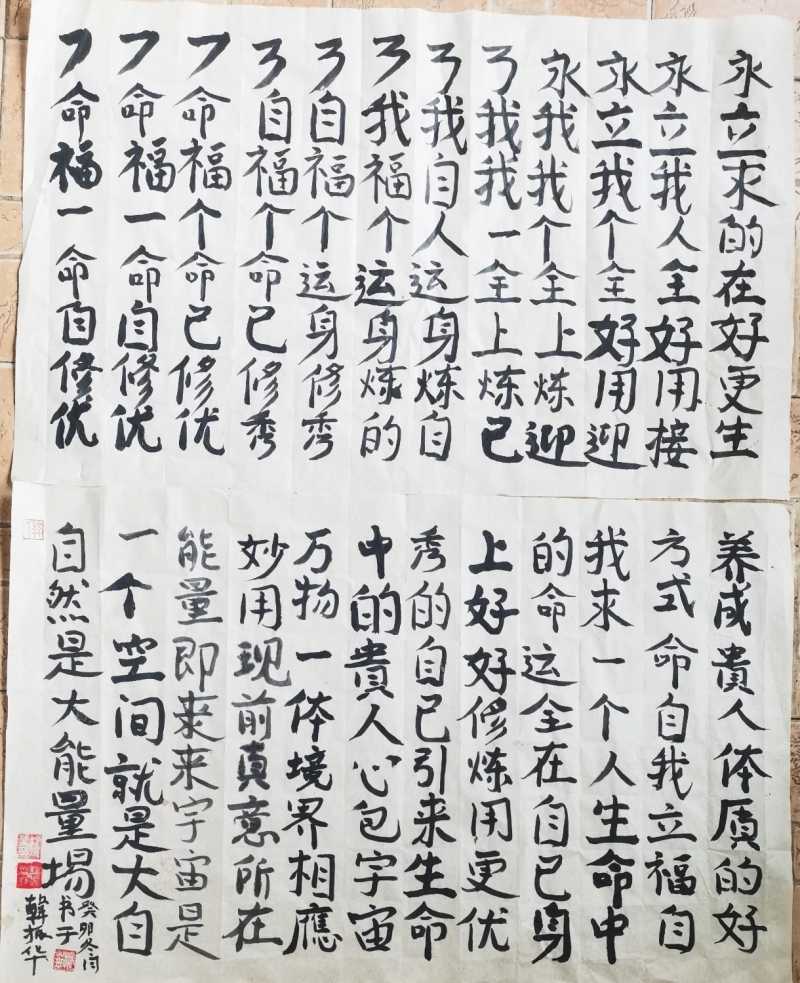 永立求的在好更生
永立我人全好用接
永立我个全好用迎
永我我个全上炼迎
了我我一全上炼己
了我自人运身炼自
了我福个运身炼的
了自福个运身修秀
了自福个命己修秀
フ命福个命己修优
フ命福一命自修优
フ命福一命自修优
养成貴人体质的好
方式命自我立福自
我求一个人生命中
的命运全在自己身
上好好修炼用更优
秀的自己引来生命
中的貴人心包宇宙
万物一体境界相應
妙用现前真意所在
能量即来来宇宙是
一个空间就是大自
自然是大能量場
癸卯冬月
书于
韓振华